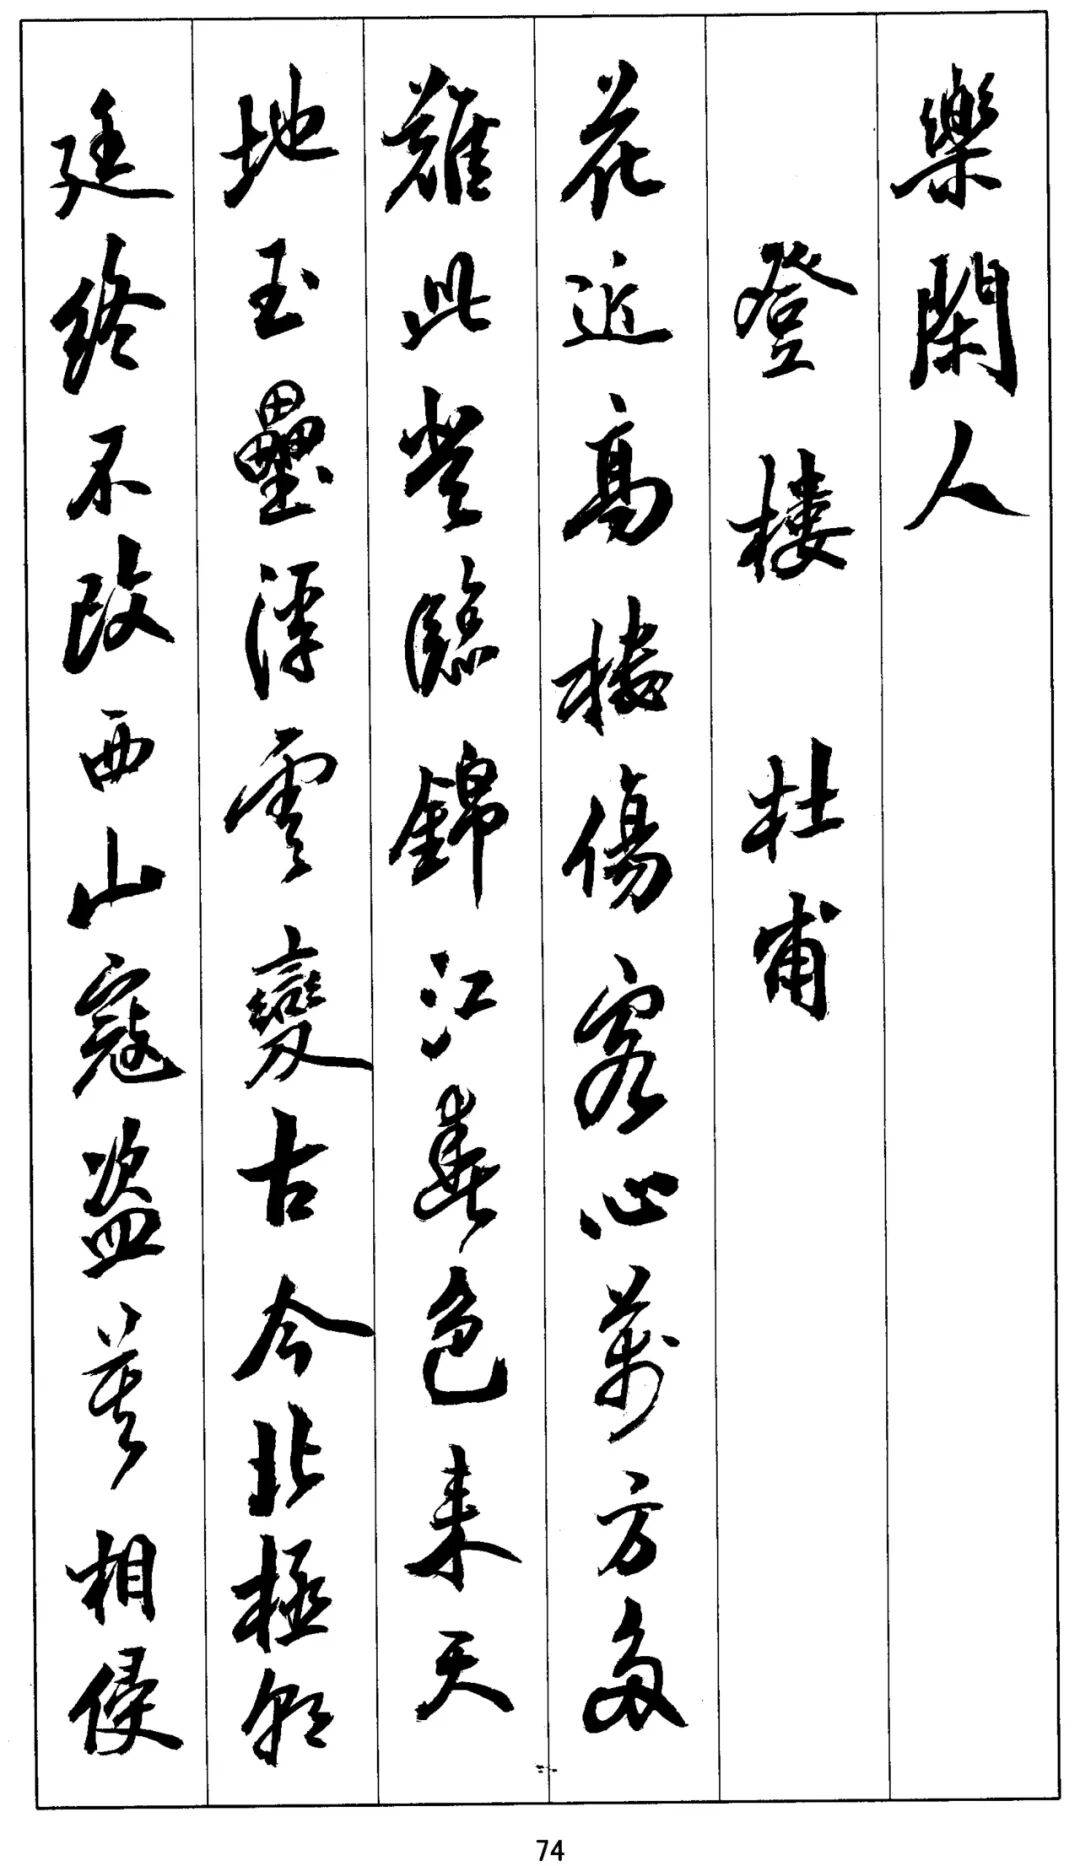 樂閑人
登樓 杜甫
花近高樓傷客心萬方多
難此登臨錦江春色来天
地玉壘浮雲變古今北極朝
廷終不改西山寇盗莫相侵
74